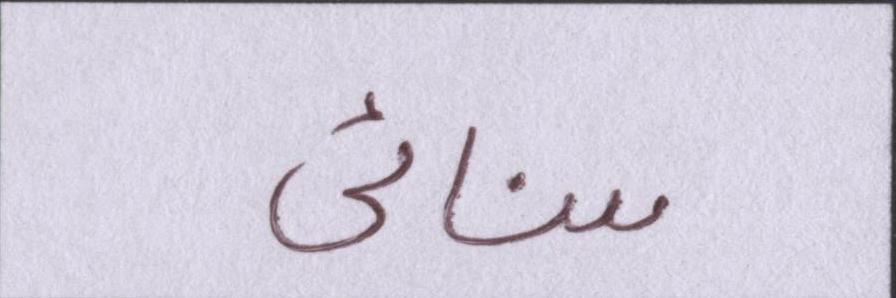 سنائی